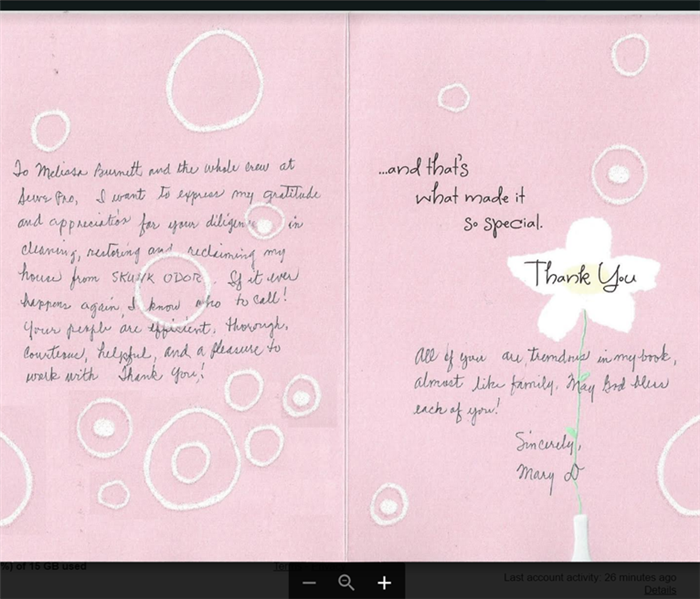 To Melissa Burnett and the whole crew at
Serv Pro, I want to express my gratitude
and appreciation for your diligence in
cleaning, restoring and reclaiming my
house from SKUNK ODOR. If it ever
happens again, I know who to call!
Your people are efficient, thorough,
courteous, helpful, and a pleasure to
work with Thank You!
...and that's
what made it
so special.
Thank You
All of you are in my book,
almost like family. May God bless
each of you!
Sincerely,
Mary D
%) of 15 GB used
Last account activity: 26 minutes ago
Details